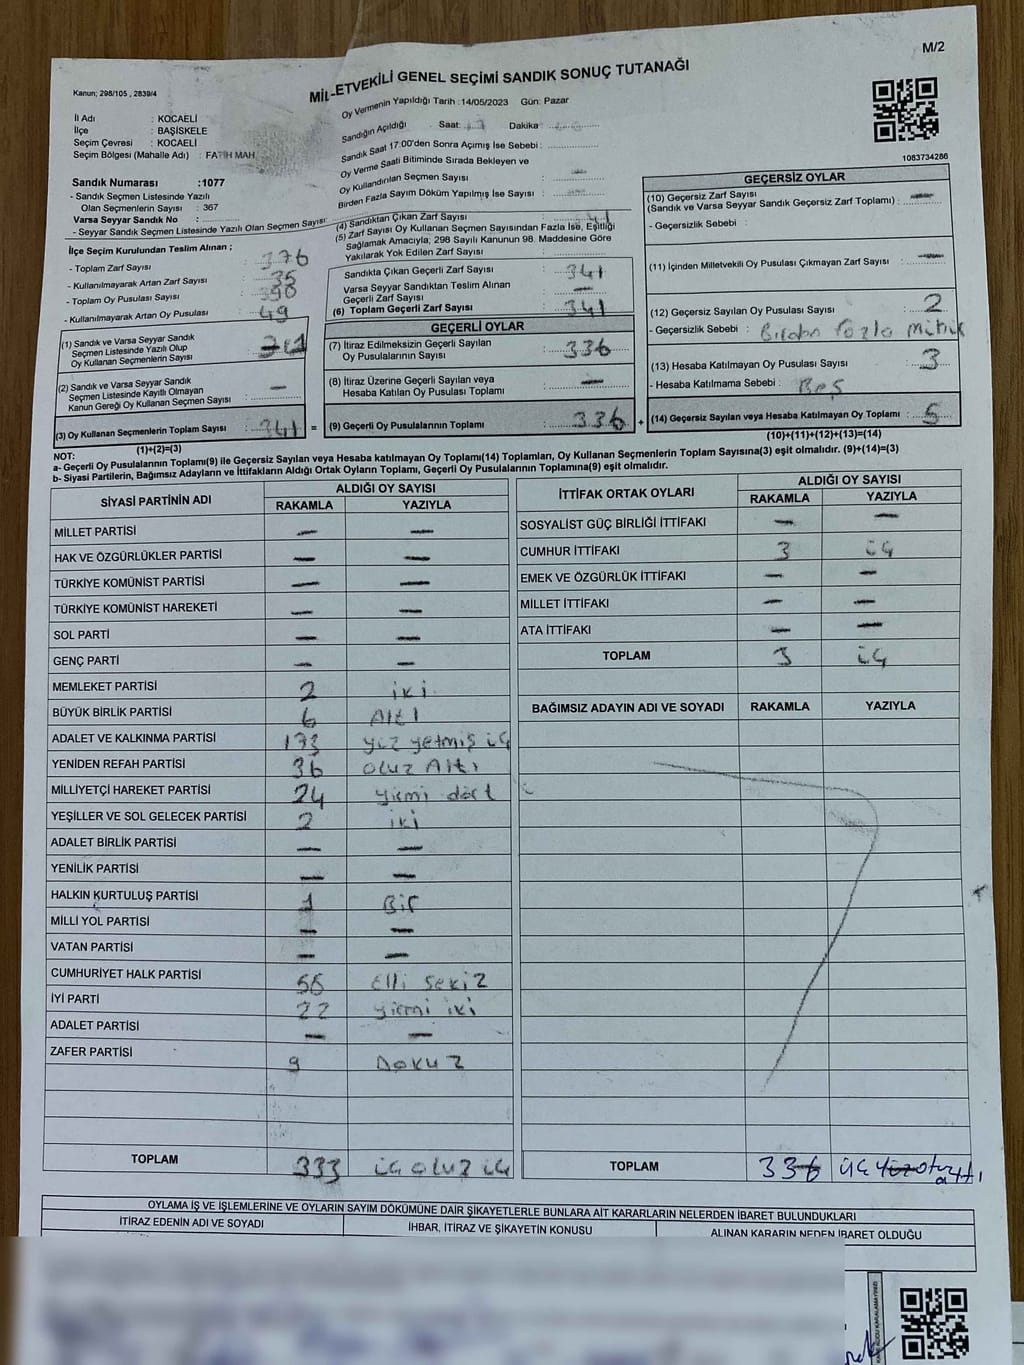 M/2
Kanun; 298/105 , 2839/4
MİL-ETVEKİLİ GENEL SEÇİMİ SANDIK SONUÇ TUTANAĞI
Oy Vermenin Yapıldığı Tarih : 14/05/2023 Gün: Pazar
İl Adı : KOCAELİ
İlçe : BAŞİSKELE
Seçim Çevresi : KOCAELİ
Seçim Bölgesi (Mahalle Adı) : FATİH MAH
Sandığın Açıldığı Saat: Dakika
Sandık Saat 17:00'den Sonra Açımış İse Sebebi :
Oy Verme Saati Bitiminde Sırada Bekleyen ve
Oy Kullandırılan Seçmen Sayısı :
Birden Fazla Sayım Döküm Yapılmış İse Sayısı :
1083734286
Sandık Numarası : 1077
- Sandık Seçmen Listesinde Yazılı
Olan Seçmenlerin Sayısı : 367
Varsa Seyyar Sandık No :
- Seyyar Sandık Seçmen Listesinde Yazılı Olan Seçmen Sayısı:
İlçe Seçim Kurulundan Teslim Alınan ;
- Toplam Zarf Sayısı : 376
- Kullanılmayarak Artan Zarf Sayısı : 35
- Toplam Oy Pusulası Sayısı : 390
- Kullanılmayarak Artan Oy Pusulası : 49
(1) Sandık ve Varsa Seyyar Sandık
Seçmen Listesinde Yazılı Olup
Oy Kullanan Seçmenlerin Sayısı
(2) Sandık ve Varsa Seyyar Sandık
Seçmen Listesinde Kayıtlı Olmayan
Kanun Gereği Oy Kullanan Seçmen Sayısı : —
(3) Oy Kullanan Seçmenlerin Toplam Sayısı : 341 =
(1)+(2)=(3)
(4) Sandıktan Çıkan Zarf Sayısı
(5) Zarf Sayısı Oy Kullanan Seçmen Sayısından Fazla İse, Eşitliği
Sağlamak Amacıyla; 298 Sayılı Kanunun 98. Maddesine Göre
Yakılarak Yok Edilen Zarf Sayısı :
Sandıkta Çıkan Geçerli Zarf Sayısı : 341
Varsa Seyyar Sandıktan Teslim Alınan
Geçerli Zarf Sayısı : —
(6) Toplam Geçerli Zarf Sayısı : 341
GEÇERLİ OYLAR
(7) İtiraz Edilmeksizin Geçerli Sayılan
Oy Pusulalarının Sayısı : 336
(8) İtiraz Üzerine Geçerli Sayılan veya
Hesaba Katılan Oy Pusulası Toplamı : —
(9) Geçerli Oy Pusulalarının Toplamı : 336 +
GEÇERSİZ OYLAR
(10) Geçersiz Zarf Sayısı
(Sandık ve Varsa Seyyar Sandık Geçersiz Zarf Toplamı) : —
- Geçersizlik Sebebi :
(11) İçinden Milletvekili Oy Pusulası Çıkmayan Zarf Sayısı : —
(12) Geçersiz Sayılan Oy Pusulası Sayısı : 2
- Geçersizlik Sebebi : Birden fazla
(13) Hesaba Katılmayan Oy Pusulası Sayısı : 3
- Hesaba Katılmama Sebebi : Boş
(14) Geçersiz Sayılan veya Hesaba Katılmayan Oy Toplamı : 5
(10)+(11)+(12)+(13)=(14)
NOT:
a- Geçerli Oy Pusulalarının Toplamı(9) ile Geçersiz Sayılan veya Hesaba Katılmayan oy Toplamı(14) Toplamları, Oy Kullanan Seçmenlerin Toplam Sayısına(3) eşit olmalıdır. (9)+(14)=(3)
b- Siyasi Partilerin, Bağımsız Adayların ve İttifakların Aldığı Ortak Oyların Toplamı, Geçerli Oy Pusulalarının Toplamına(9) eşit olmalıdır.
SİYASİ PARTİNİN ADI ALDIĞI OY SAYISI
RAKAMLA YAZIYLA
MİLLET PARTİSİ — —
HAK VE ÖZGÜRLÜKLER PARTİSİ — —
TÜRKİYE KOMÜNİST PARTİSİ — —
TÜRKİYE KOMÜNİST HAREKETİ — —
SOL PARTİ — —
GENÇ PARTİ — —
MEMLEKET PARTİSİ 2 iki
BÜYÜK BİRLİK PARTİSİ 6 Altı
ADALET VE KALKINMA PARTİSİ 173 yüz yetmiş üç
YENİDEN REFAH PARTİSİ 36 otuz Altı
MİLLİYETÇİ HAREKET PARTİSİ 24 yirmi dört
YEŞİLLER VE SOL GELECEK PARTİSİ 2 iki
ADALET BİRLİK PARTİSİ — —
YENİLİK PARTİSİ — —
HALKIN KURTULUŞ PARTİSİ 1 Bir
MİLLİ YOL PARTİSİ — —
VATAN PARTİSİ — —
CUMHURİYET HALK PARTİSİ 58 elli sekiz
İYİ PARTİ 22 yirmi iki
ADALET PARTİSİ — —
ZAFER PARTİSİ 9 Dokuz
TOPLAM 333 üç otuz üç
İTTİFAK ORTAK OYLARI ALDIĞI OY SAYISI
RAKAMLA YAZIYLA
SOSYALİST GÜÇ BİRLİĞİ İTTİFAKI — —
CUMHUR İTTİFAKI 3 üç
EMEK VE ÖZGÜRLÜK İTTİFAKI — —
MİLLET İTTİFAKI — —
ATA İTTİFAKI — —
TOPLAM 3 üç
BAĞIMSIZ ADAYIN ADI VE SOYADI RAKAMLA YAZIYLA
TOPLAM 336 üç yüz otuz altı
OYLAMA İŞ VE İŞLEMLERİNE VE OYLARIN SAYIM DÖKÜMÜNE DAİR ŞİKAYETLERLE BUNLARA AİT KARARLARIN NELERDEN İBARET BULUNDUKLARI
İTİRAZ EDENİN ADI VE SOYADI İHBAR, İTİRAZ VE ŞİKAYETİN KONUSU ALINAN KARARIN NEDEN İBARET OLDUĞU